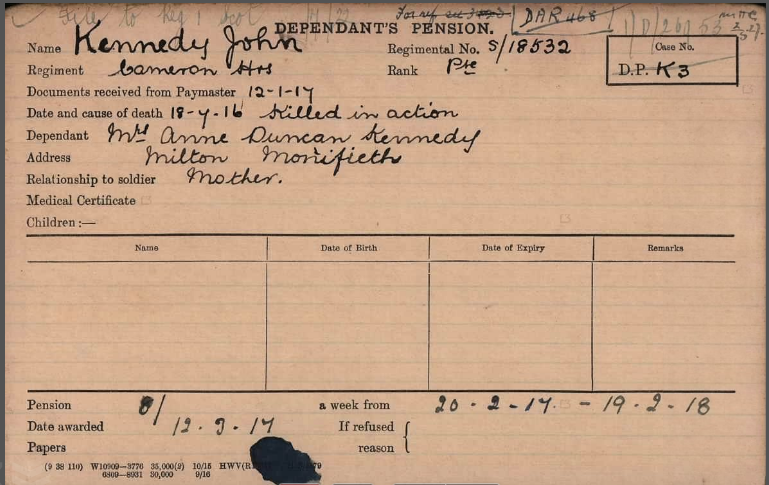 File to Reg 1 Scot
DAR 468
DEPENDANT'S PENSION.
Name Kennedy John Regimental No. S/18532
Case No.
D.P. K3
Regiment Cameron Hrs Rank Pte
Documents received from Paymaster 12-1-17
Date and cause of death 18-7-16 Killed in action
Dependant Mrs Anne Duncan Kennedy
Address Milton Monifieth
Relationship to soldier Mother.
Medical Certificate
Children :—
Name Date of Birth Date of Expiry Remarks
Pension 8/ a week from 20-2-17. - 19-2-18
Date awarded 12.3.17 If refused
Papers reason {
(9 38 110) W10909—3776 35,000(2) 10/15 HWV(R
6809—8931 50,000 9/16